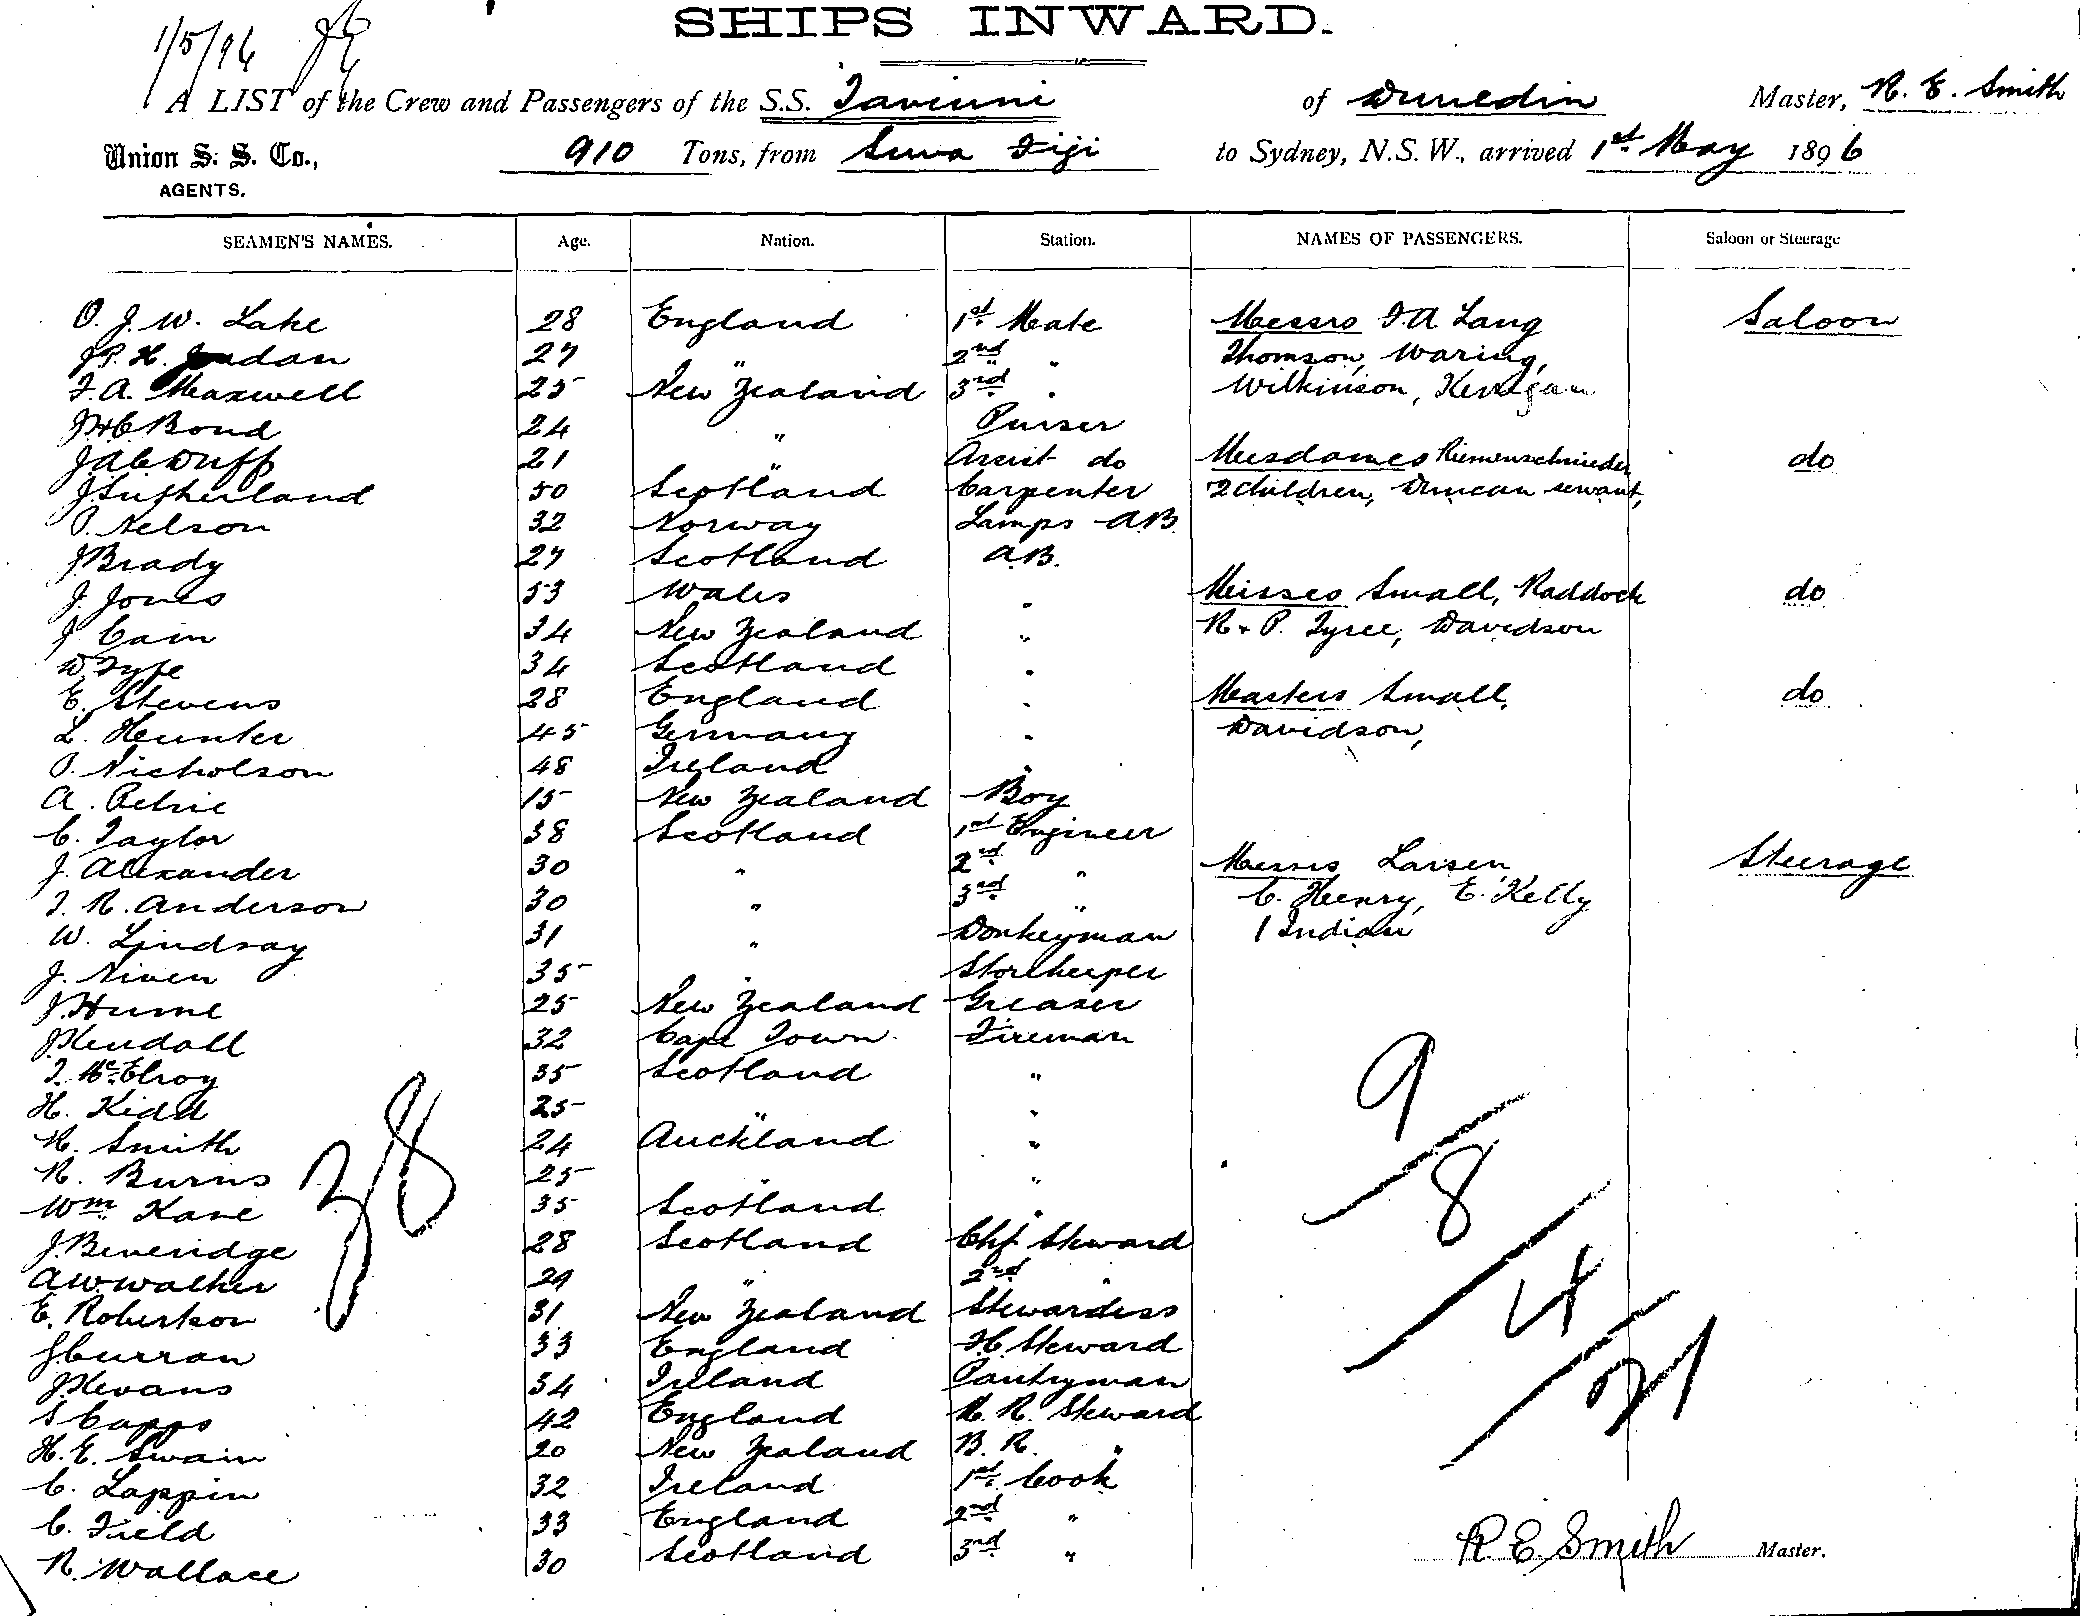 1/5/96
SHIPS INWARD.
A LIST of the Crew and Passengers of the S.S. Taviuni of Dunedin Master, R. E. Smith
Union S. S. Co., 910 Tons, from Suva Fiji to Sydney, N.S.W., arrived 1st May 1896
AGENTS.
SEAMEN'S NAMES. Age. Nation. Station. NAMES OF PASSENGERS. Saloon or Steerage
O. J. W. Lake 28 England 1st Mate Messrs F A Lang Saloon
H. Jordan 27 " 2nd " Thomson, Waring,
F. A. Maxwell 25 New Zealand 3rd " Wilkinson, Kerrigan
J H C Bond 24 " Purser
J A C Duff 21 " Assist do Mesdames Riemenschnieder do
J Sutherland 50 Scotland Carpenter 2 Children, Duncan servant,
P. Nelson 32 Norway Lamps A.B.
J Brady 27 Scotland A.B.
J. Jones 53 Wales " Misses Small, Raddock do
J Cain 34 New Zealand " R + P. Tyree, Davidson
D Fyfe 34 Scotland "
E. Stevens 28 England " Masters Small, do
L. Hunter 45 Germany " Davidson,
P. Nicholson 48 Ireland "
A. Petrie 15 New Zealand Boy
C. Taylor 38 Scotland 1st Engineer
J. Alexander 30 " 2nd " Messrs Larsen, Steerage
T. R. Anderson 30 " 3rd " C. Henry, E. Kelly
W. Lindsay 31 " Donkeyman 1 Indian
J. Niven 35 " Storekeeper
J. Hume 25 New Zealand Greaser
J Kendall 32 Cape Town Fireman
T. McElroy 35 Scotland "
H. Kidd 25 " "
H. Smith 24 Auckland "
R. Burns 25 " "
Wm Kane 35 Scotland "
J. Beveridge 28 Scotland Chf Steward
A W Walker 29 " 2nd "
E. Robertson 31 New Zealand Stewardess
J Curran 33 England F. C. Steward
J Kevans 34 Ireland Pantryman
S Capps 42 England R. R. Steward
H. E. Swain 20 New Zealand B. R. "
C. Lappin 32 Ireland 1st Cook
C. Field 33 England 2nd "
R. Wallace 30 Scotland 3rd "
38
9
8
4
21
R E Smith Master.